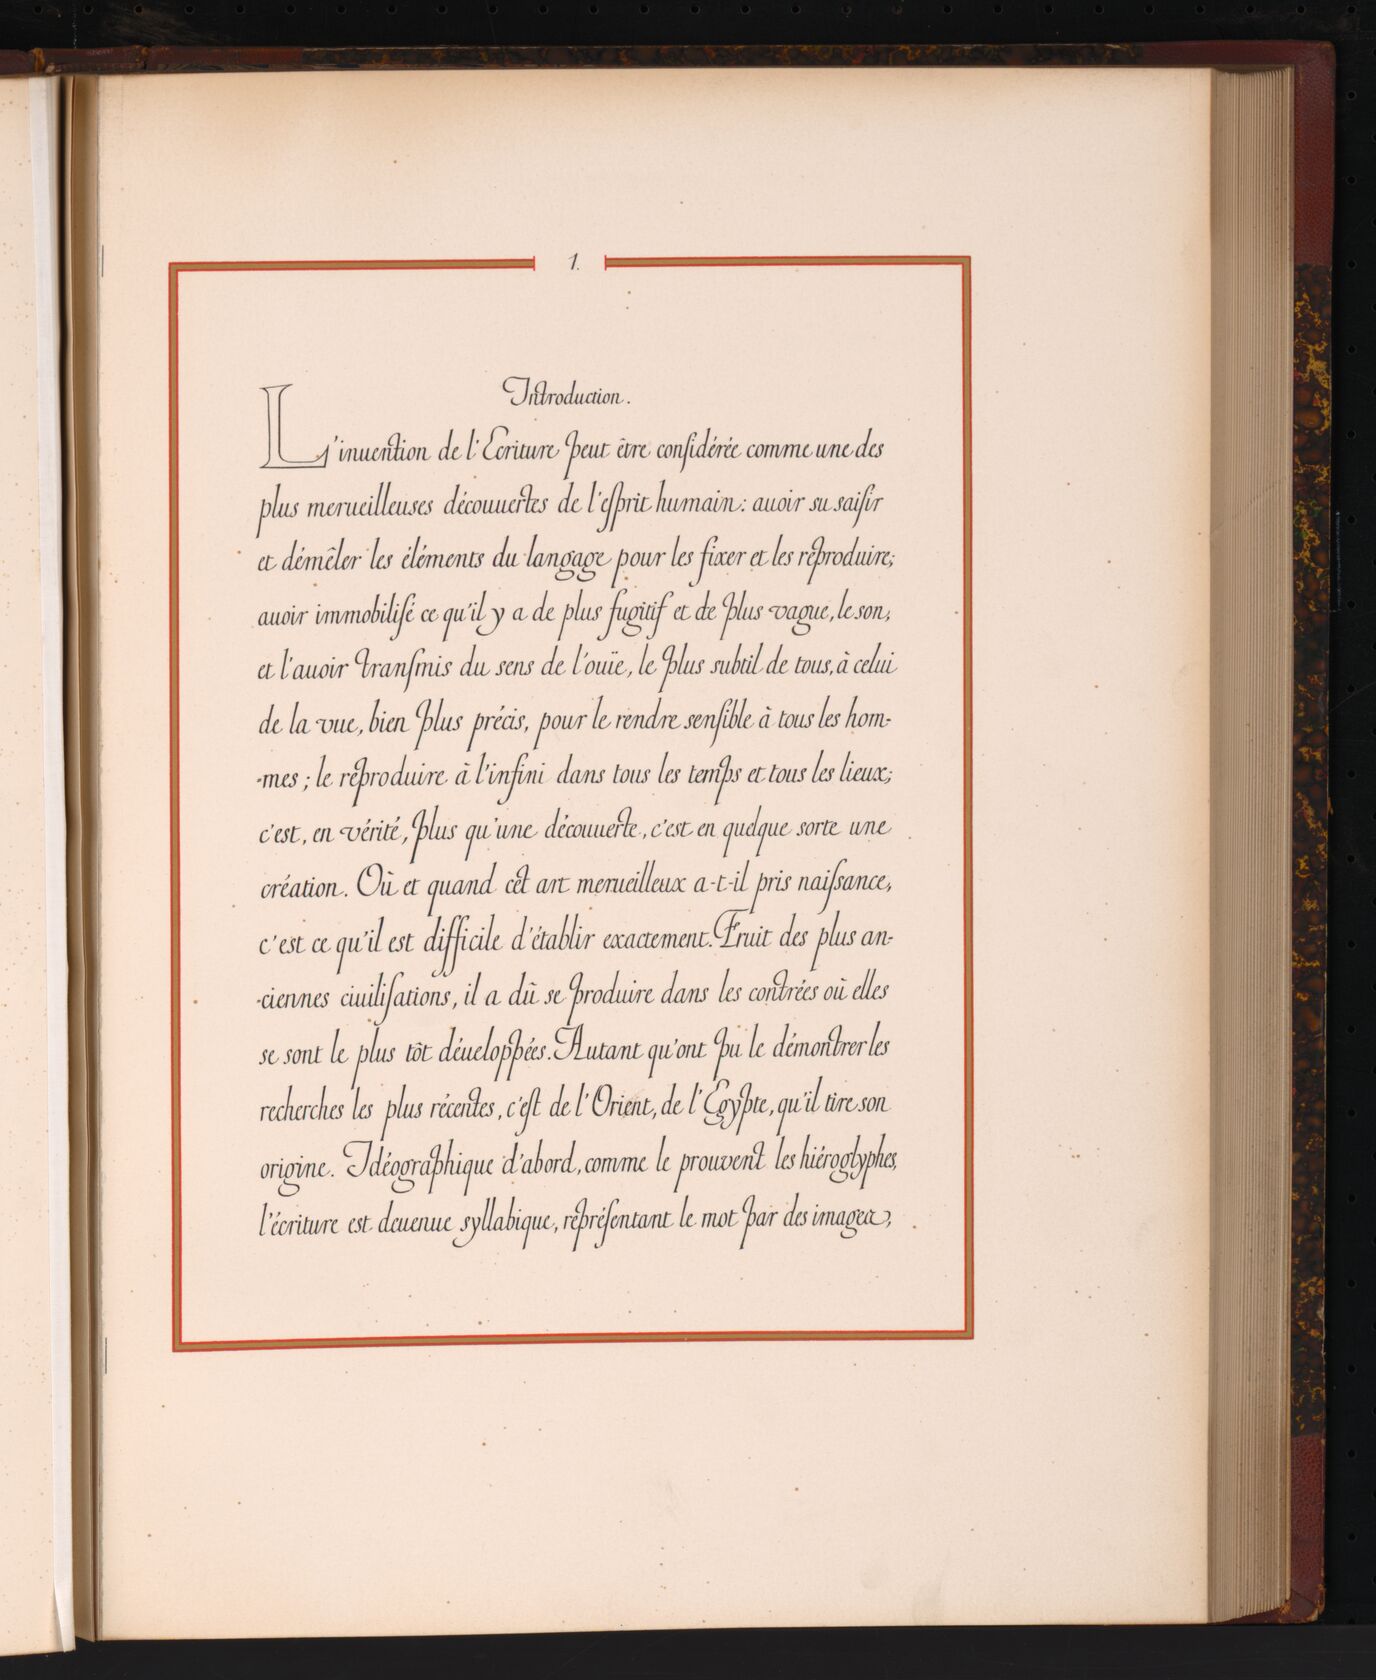 1.
Introduction.
L'inuention de l'Ecriture peut être conſidérée comme une des
plus merueilleuses découuertes de l'eſprit humain: auoir su saiſir
et démêler les éléments du langage pour les fixer et les reproduire;
auoir immobiliſé ce qu'il y a de plus fugitif et de plus vague, le son;
et l'auoir tranſmis du sens de l'ouïe, le plus subtil de tous, à celui
de la vue, bien plus précis, pour le rendre senſible à tous les hom-
-mes; le reproduire à l'infini dans tous les temps et tous les lieux;
c'est, en vérité, plus qu'une découuerte, c'est en quelque sorte une
création. Où et quand cet art merueilleux a-t-il pris naiſsance,
c'est ce qu'il est difficile d'établir exactement. Fruit des plus an-
-ciennes ciuiliſations, il a dû se produire dans les contrées où elles
se sont le plus tôt déueloppées. Autant qu'ont pu le démontrer les
recherches les plus récentes, c'eſt de l'Orient, de l'Egypte, qu'il tire son
origine. Idéographique d'abord, comme le prouvent les hiéroglyphes,
l'écriture est deuenue syllabique, repréſentant le mot par des images,